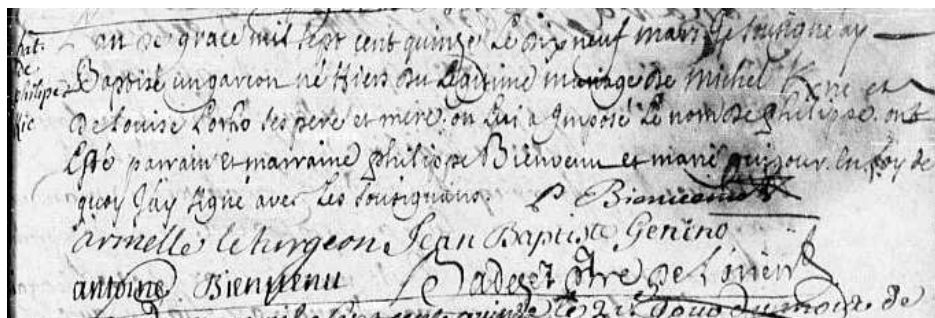 bat.
de
philippe
L'an de grace mil sept cent quinze Le dix neuf mars Je soussigne ay
Baptisé un garcon né hier du Legitime mariage de Michel et
de Louise Lorho ses pere et mere on Lui a Imposé Le nom de philippe ont
Esté parrain et marraine philippe Bienvenu et marie en foy de
quoy J'ay signe avec Les soussignans P Bienvenu
armelle le turgeon Jean Baptiste Genino
antoine Bienvenu Cadezet ptre de Lorient